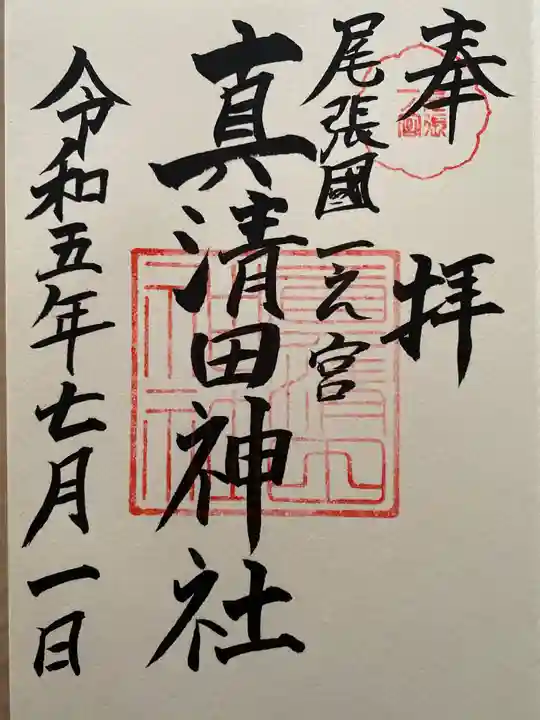 奉拝
尾張國一之宮
真清田神社
令和五年七月一日